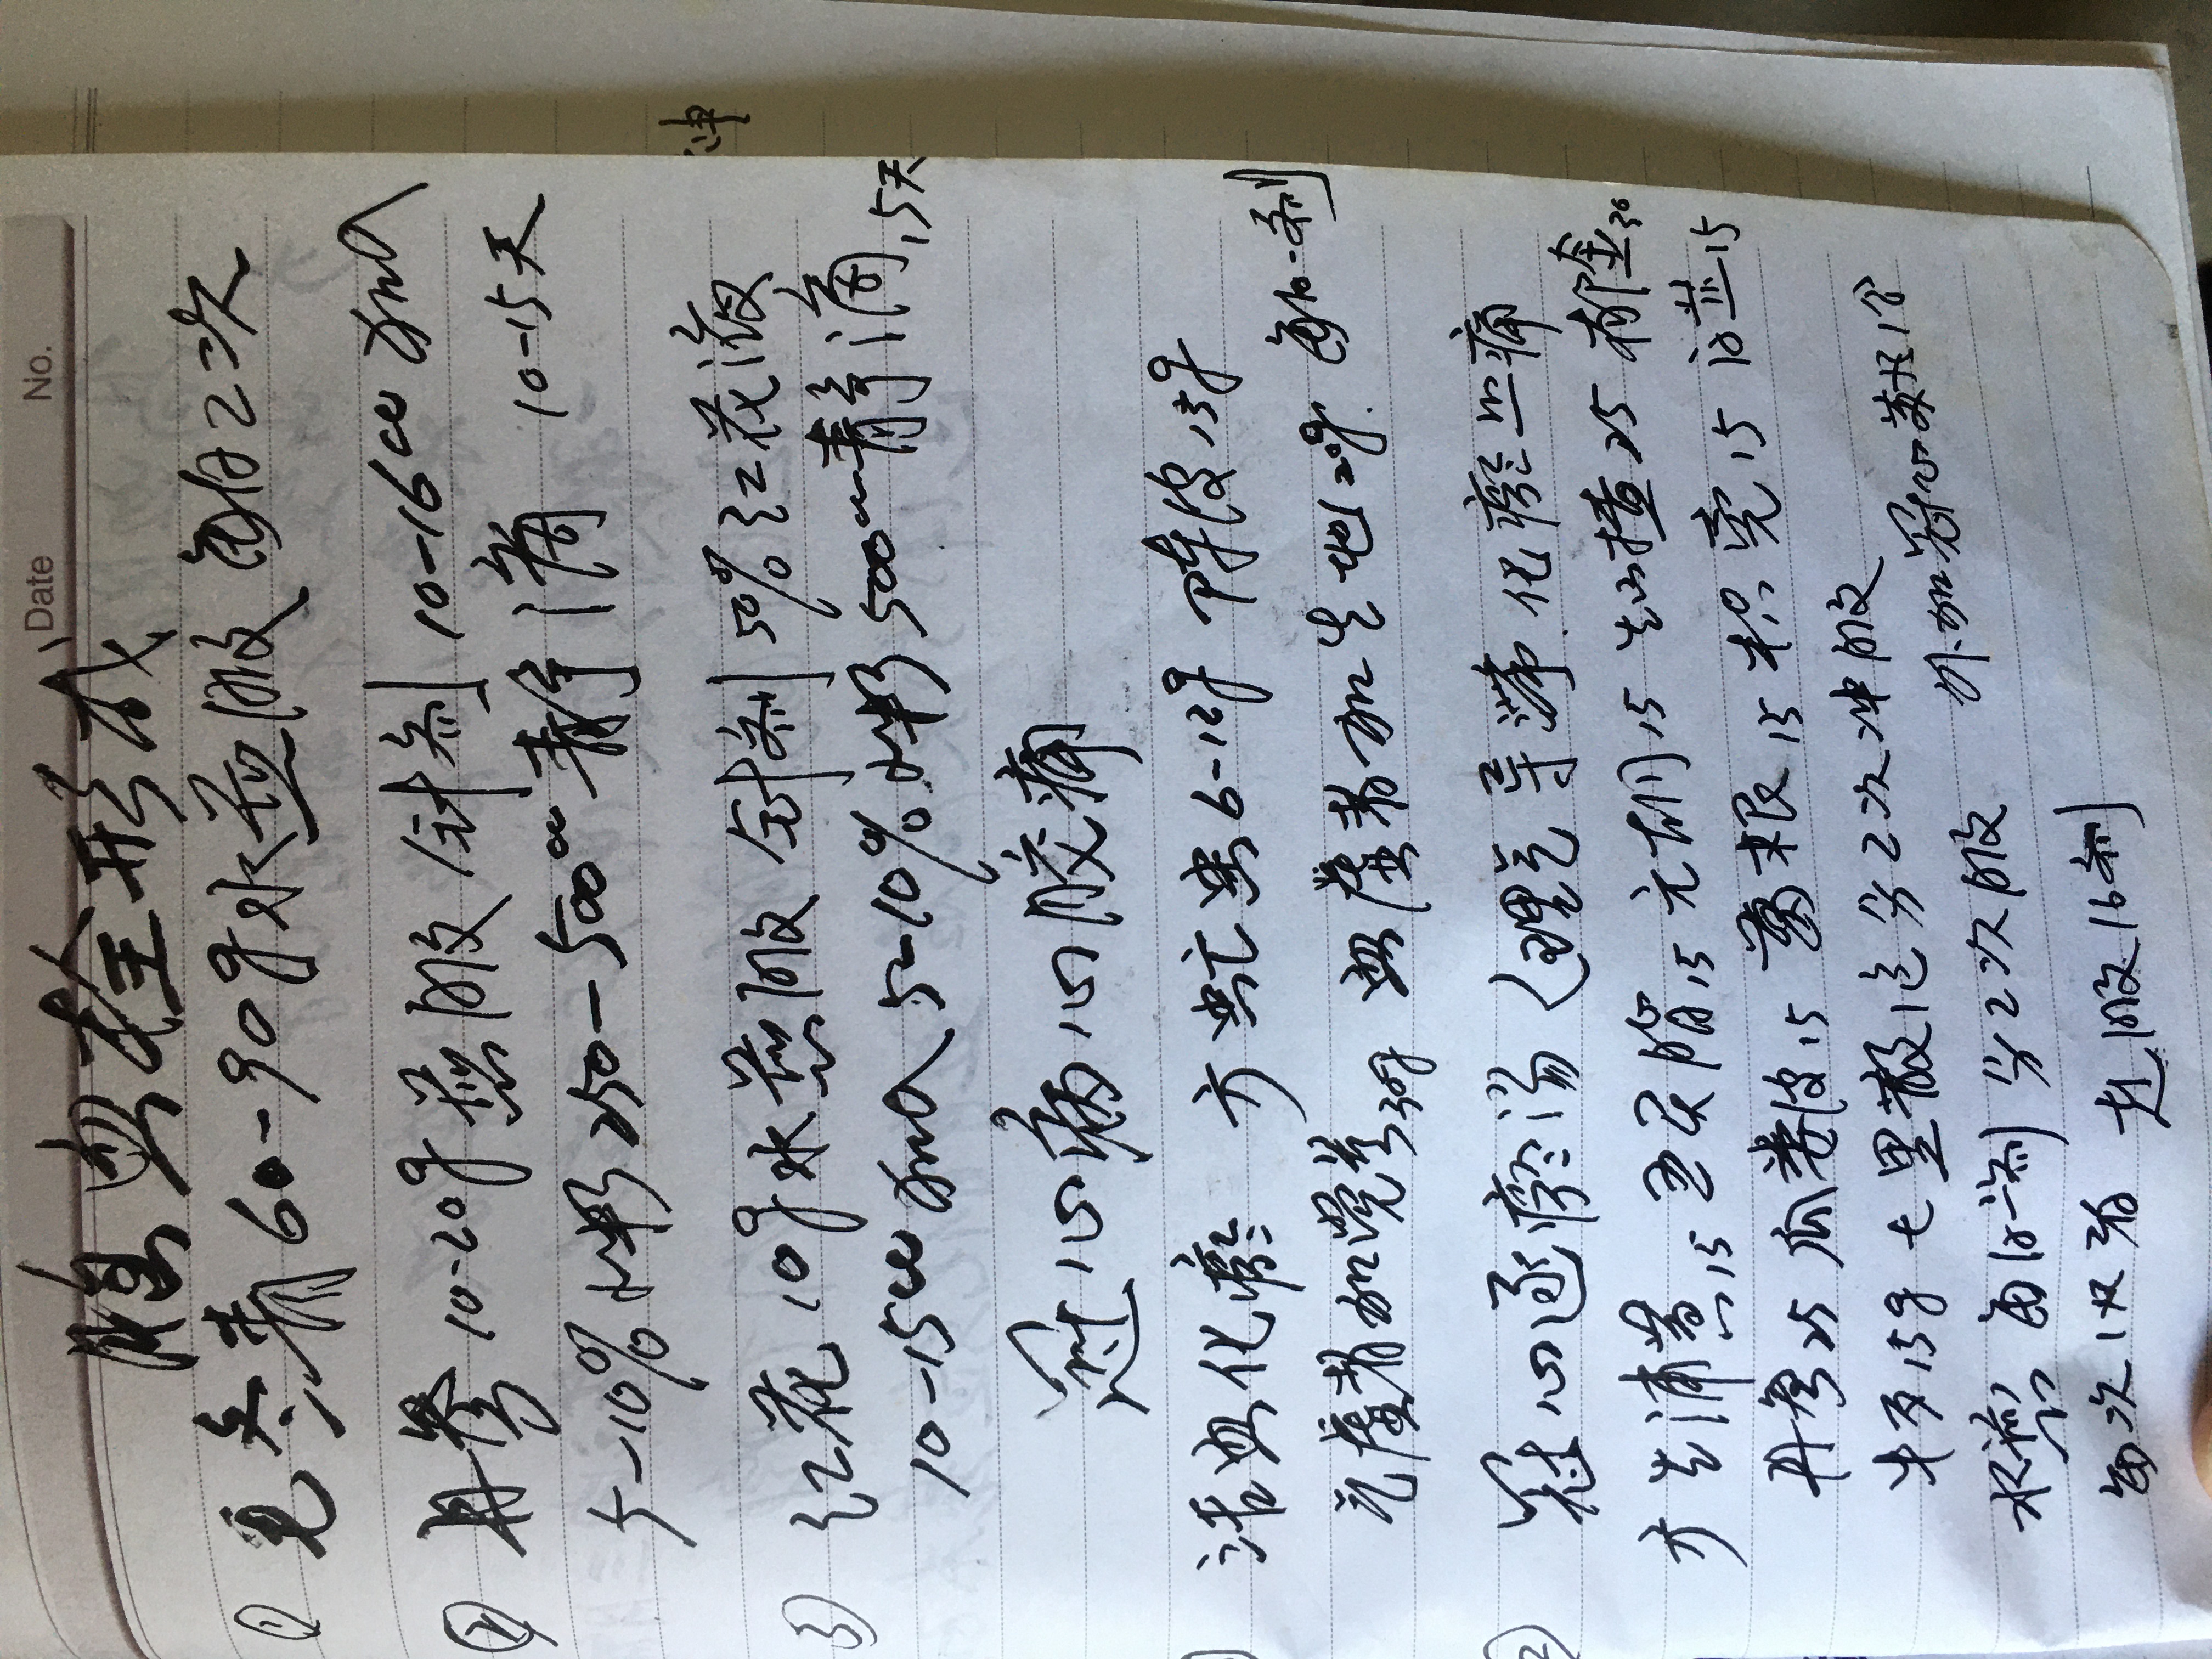 Date No.
脑血栓形成
① 毛冬青60-90g水煎服 每日2次
② 丹参10-20g煎服 针剂10-16cc 加入
5-10% 250-500cc静滴 10-15天
③ 红花10g水煎服 针剂50%红花液
10-15cc加入5-10% 500cc静滴15天
冠心病心胶痛
活血化瘀 方虻虫6-12g 陈皮15g
气虚者加党参30g 血虚者加生地20g 每日一剂
冠心逐瘀汤(理气导滞.化瘀止痛
方生浦黄15 五灵脂15 元胡15 生山楂25 郁金30
丹参25 瓜娄皮15 葛根15 枳壳15 15
牛歹15g 七里散1包分2次冲服
外加冠心苏
水煎 每日一剂 分2次服
每次 服16剂